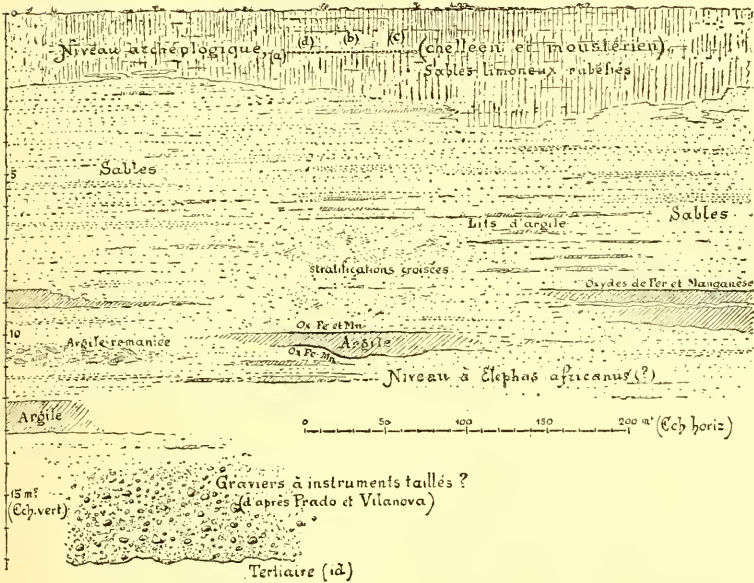 0
Niveau archéologique, (a) (d) (b) (c) (chelléen et moustérien)
Sables limoneux rubéfiés
Sables
5
Lits d'argile
Sables
stratifications croisées
Oxydes de Fer et Manganèse
Ox Fe et Mn
10
Argile remaniée
Argile
Ox Fe-Mn
Niveau à Elephas africanus (?)
Argile
0 50 100 150 200 mˢ (Ech horiz)
Graviers à instruments taillés ?
15 mˢ
(d'après Prado et Vilanova)
(Ech. vert)
Tertiaire (id)